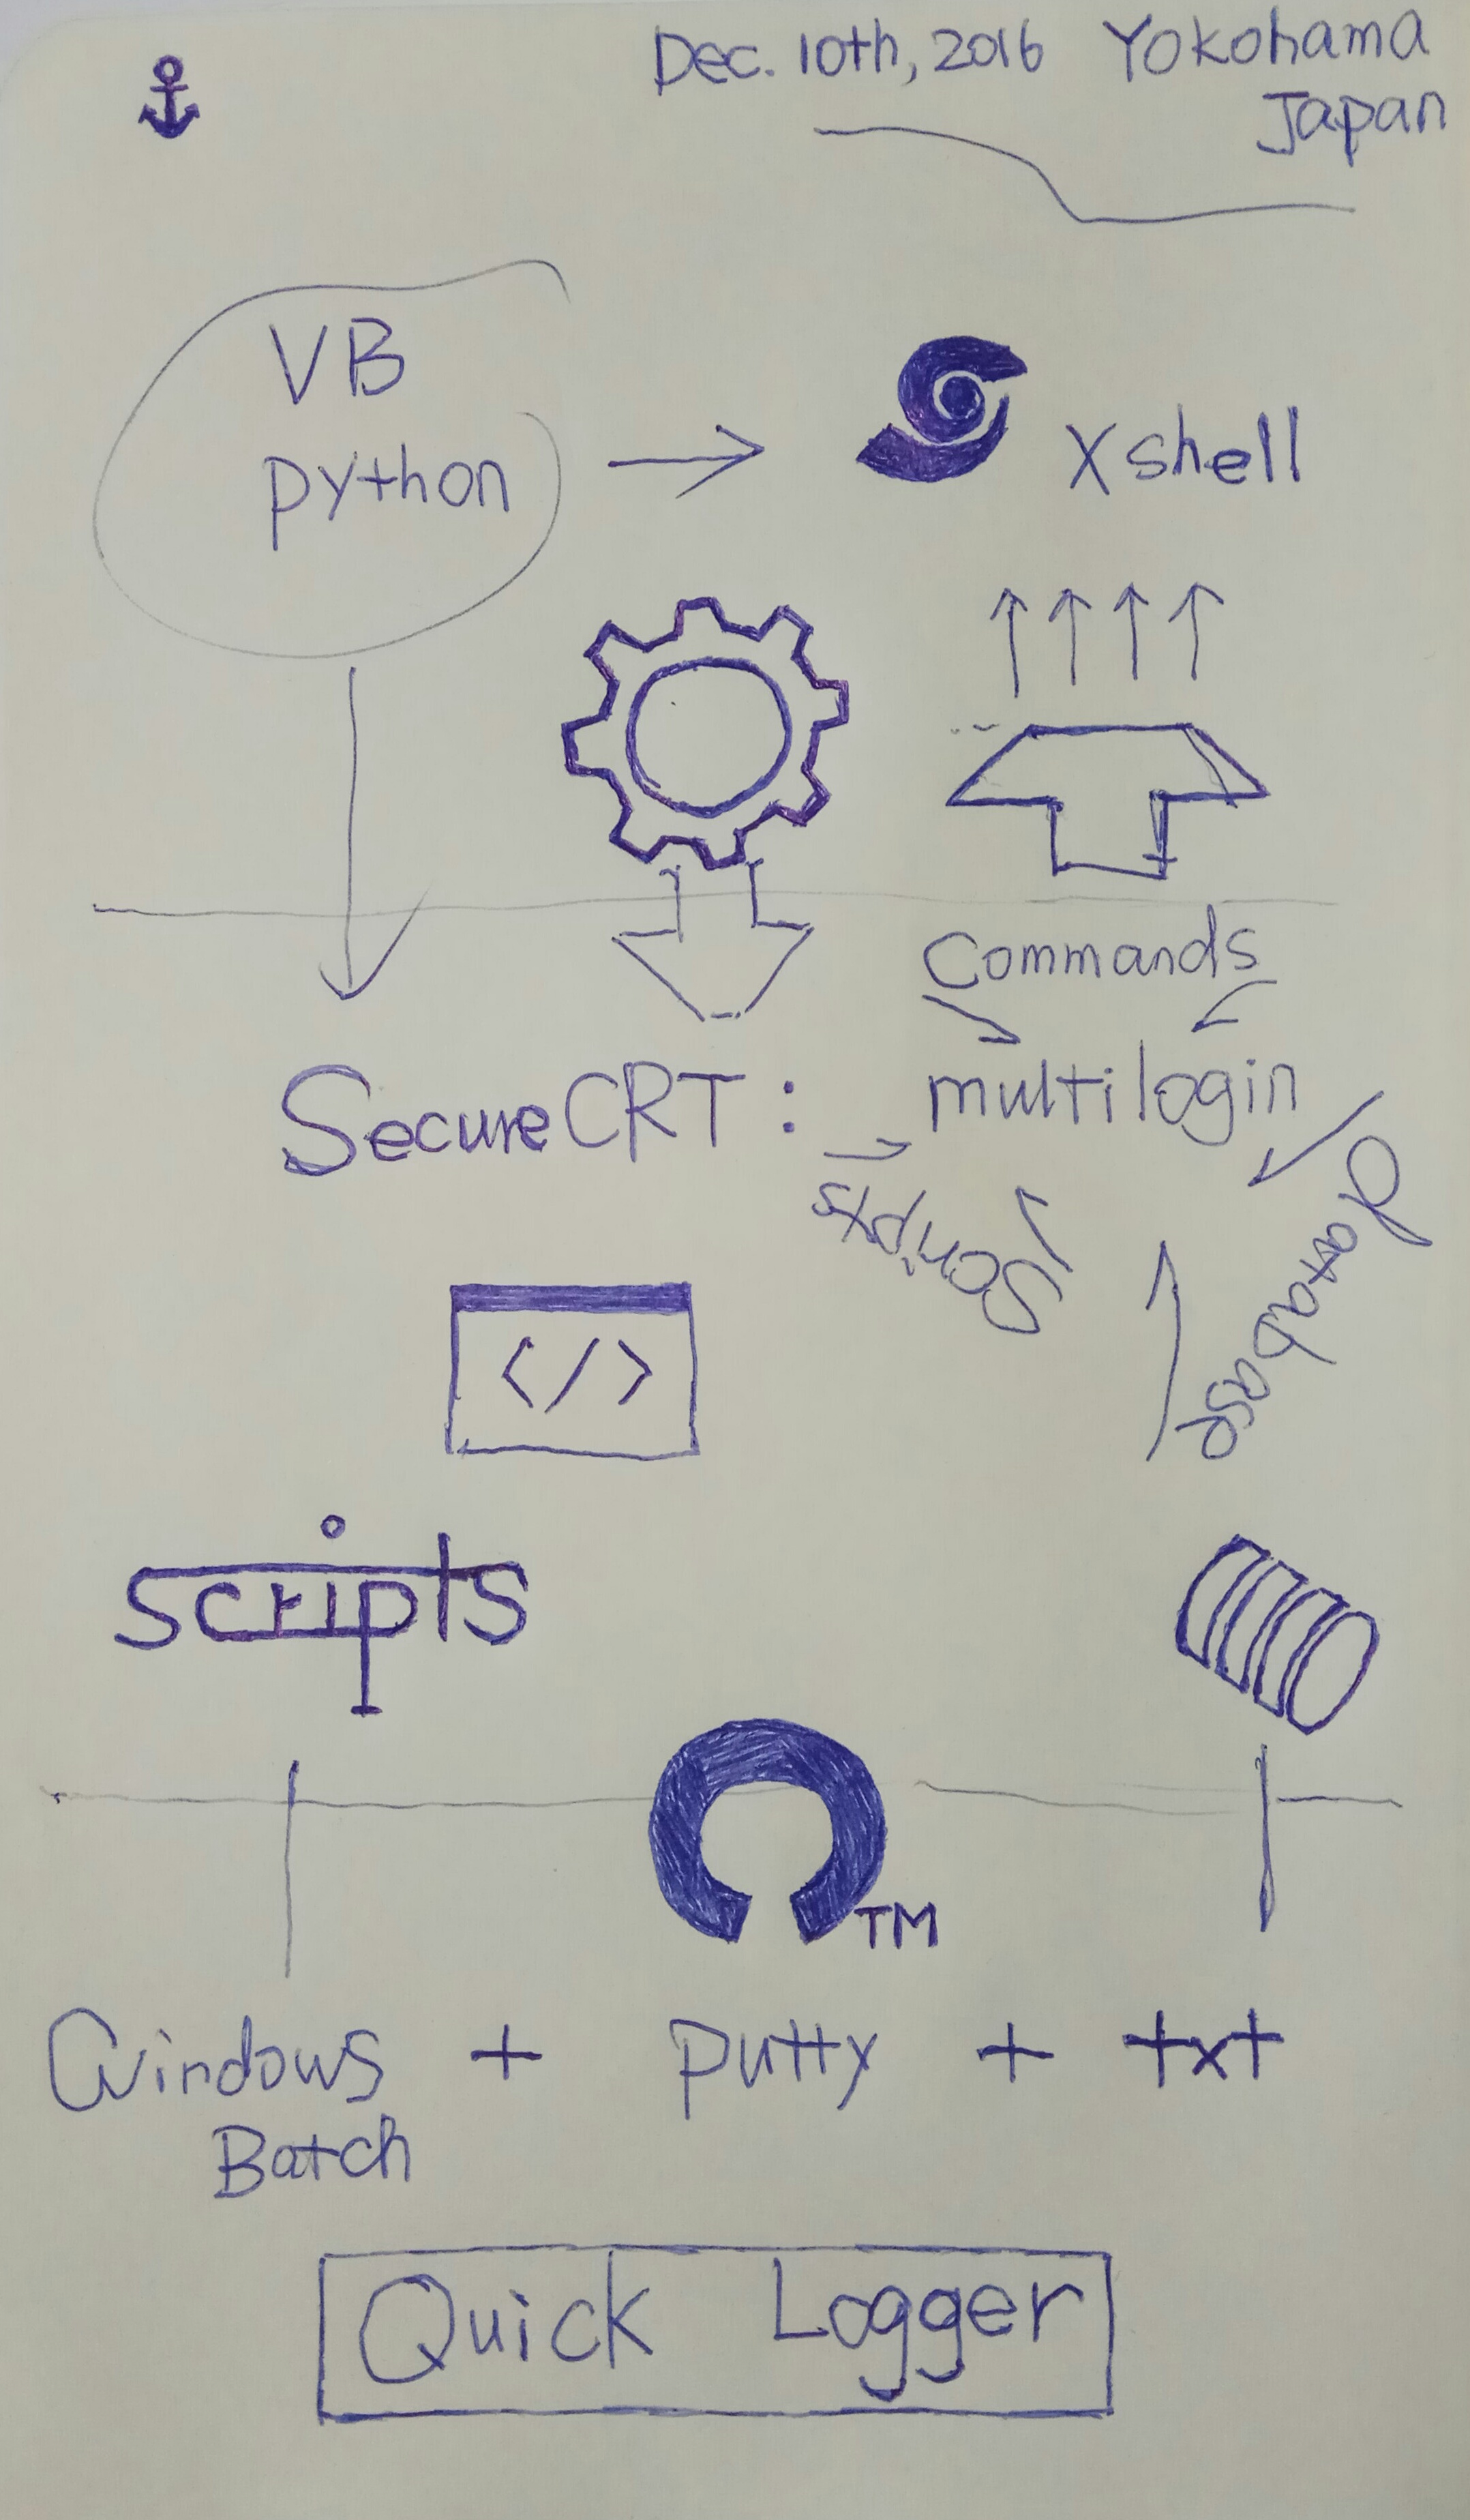 Dec. 10th, 2016 Yokohama
Japan
VB
python
xshell
Commands
SecureCRT : multilogin
Scripts
database
</>
scripts
TM
Windows + putty + txt
Batch
Quick Logger